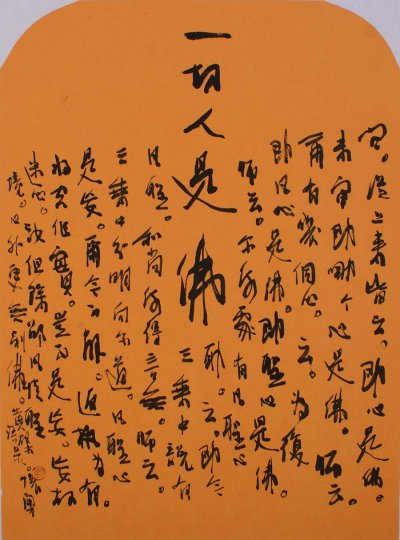 一切人是佛
问。從上来皆云。即心是佛。
未审即哪个心是佛。师云。
爾有幾個心。云。为復
即凡心是佛。即聖心是佛。
师云。尔何处有凡聖心
耶。云。即今
三乘中說有
凡聖。和尚何得言無。师云。
三乘中分明向尔道。凡聖心
是妄。爾今不解。返执为有。
将空作實。岂不是妄。妄故
迷心。汝但除卻凡情聖
境。心外更无别佛。黄檗